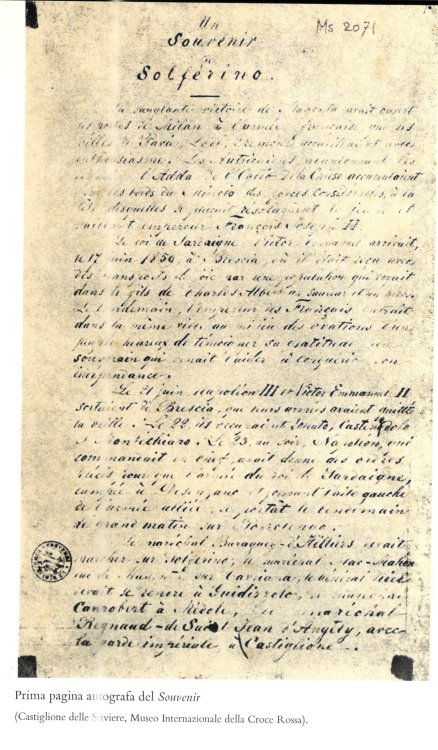 Ms 2071
Un
Souvenir
de
Solférino.
La sanglante victoire de Magenta avait ouvert
les portes de Milan à l'armée française, que les
villes de Pavie, Lodi, Crémone accueillaient avec
enthousiasme. Les Autrichiens, abandonnant les
de l'Adda, de l'Oglio et de la Chiese accumulaient
sur les bords du Mincio des forces considérables, à la
tête desquelles se plaçait résolument le jeune et
vaillant empereur François Joseph II.
Le roi de Sardaigne Victor Emmanuel arrivait,
le 17 juin 1859, à Brescia, où il était reçu avec
des transports de joie par une population qui voyait
dans le fils de Charles Albert un sauveur et un héros.
Le lendemain, l'empereur des Français entrait
dans la même ville au milieu des ovations d'un
peuple heureux de témoigner sa gratitude au
souverain qui venait l'aider à conquérir son
indépendance.
Le 21 juin, Napoléon III et Victor Emmanuel II
sortaient de Brescia, que leurs armées avaient quitté
la veille. Le 22, ils occupaient Lonato, Castenedolo
et Montechiaro. Le 23, au soir, Napoléon, qui
commandait en chef, avait donné des ordres
pour que l'armée du roi de Sardaigne,
campée à Desenzano et formant l'aile gauche
de l'armée alliée, se portât le lendemain
de grand matin sur Pozzolengo.
Le maréchal Baraguey-d'Hilliers devait
marcher sur Solférino; le maréchal Mac-Mahon
duc de Magenta sur Cavriana, le général Niel
devait se rendre à Guidizzolo, le maréchal
Canrobert à Médole, le maréchal
Regnaud-de Saint Jean d'Angély, avec
la garde impériale à Castiglione.
Prima pagina autografa del Souvenir
(Castiglione delle Stiviere, Museo Internazionale della Croce Rossa).